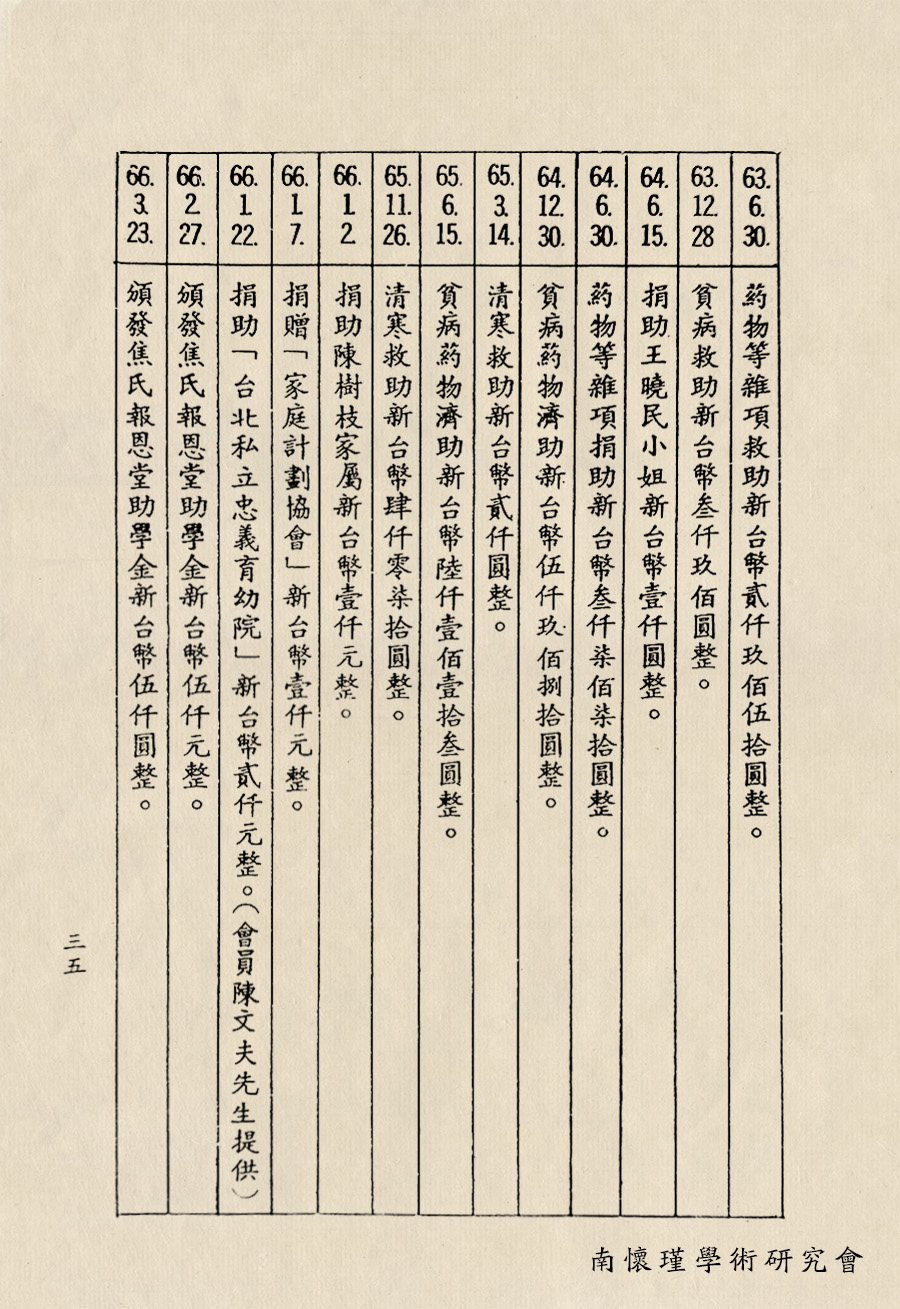 63.6.30.
药物等雜項救助新台幣貳仟玖佰伍拾圓整。
63.12.28
貧病救助新台幣叁仟玖佰圓整。
64.6.15.
捐助王曉民小姐新台幣壹仟圓整。
64.6.30.
药物等雜項捐助新台幣叁仟柒佰柒拾圓整。
64.12.30.
貧病药物濟助新台幣伍仟玖佰捌拾圓整。
65.3.14.
清寒救助新台幣貳仟圓整。
65.6.15.
貧病药物濟助新台幣陸仟壹佰壹拾叁圓整。
65.11.26.
清寒救助新台幣肆仟零柒拾圓整。
66.1.2.
捐助陳樹枝家屬新台幣壹仟元整。
66.1.7.
捐贈「家庭計劃協會」新台幣壹仟元整。
66.1.22.
捐助「台北私立忠義育幼院」新台幣貳仟元整。(會員陳文夫先生提供)
66.2.27.
頒發焦氏報恩堂助學金新台幣伍仟元整。
66.3.23.
頒發焦氏報恩堂助學金新台幣伍仟圓整。
三五
南懷瑾學術研究會